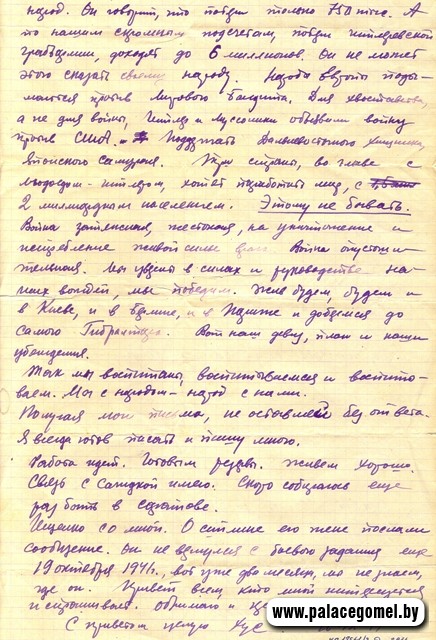 народ. Он говорит, что побили только 750 тыс. А
по нашим скромным подсчетам, побили гитлеровской
грабьармии, доходят до 6 миллионов. Он не может
этого сказать своему народу. Народы Европы поды-
маются против Мирового Бандита. Для хвастовства,
а не для войны, Гитлер и Муссолини объявили войну
против США. Поддержать Дальневосточного Хищника,
Японского Самурая. Три страны, во главе с
людоедом-гитлером, хотят поработить мир, с
2 миллиардным населением. Этому не бывать.
Война затяжная, жестокая, на уничтожение и
истребление живой силы врага. Война опустоши-
тельная. Мы уверены в силах и руководстве на-
ших вождей, мы победим. Живы будем, будем и
в Киеве, и в Берлине, и в Париже и доберемся до
самого Гибралтара. Вот наш девиз, план и наши
убеждения.
Так мы воспитаны, воспитываемся и воспиты-
ваем. Мы с народом - народ с нами.
Получая мои письма, не оставляй без ответа.
Я всегда готов писать и пишу много.
Работа идет. Готовим резервы. Живем хорошо.
Связь с имею. Скоро собираюсь еще
раз быть в Саратове.
Ищенко со мной. О его жене послали
сообщение. Он не вернулся с боевого задания еще
19 октября 1941г., вот уже два месяца, мы не знаем,
где он. Привет всем, кто мной интересуется
и спрашивает. Обнимаю и
С приветом целую
www.palacegomel.by